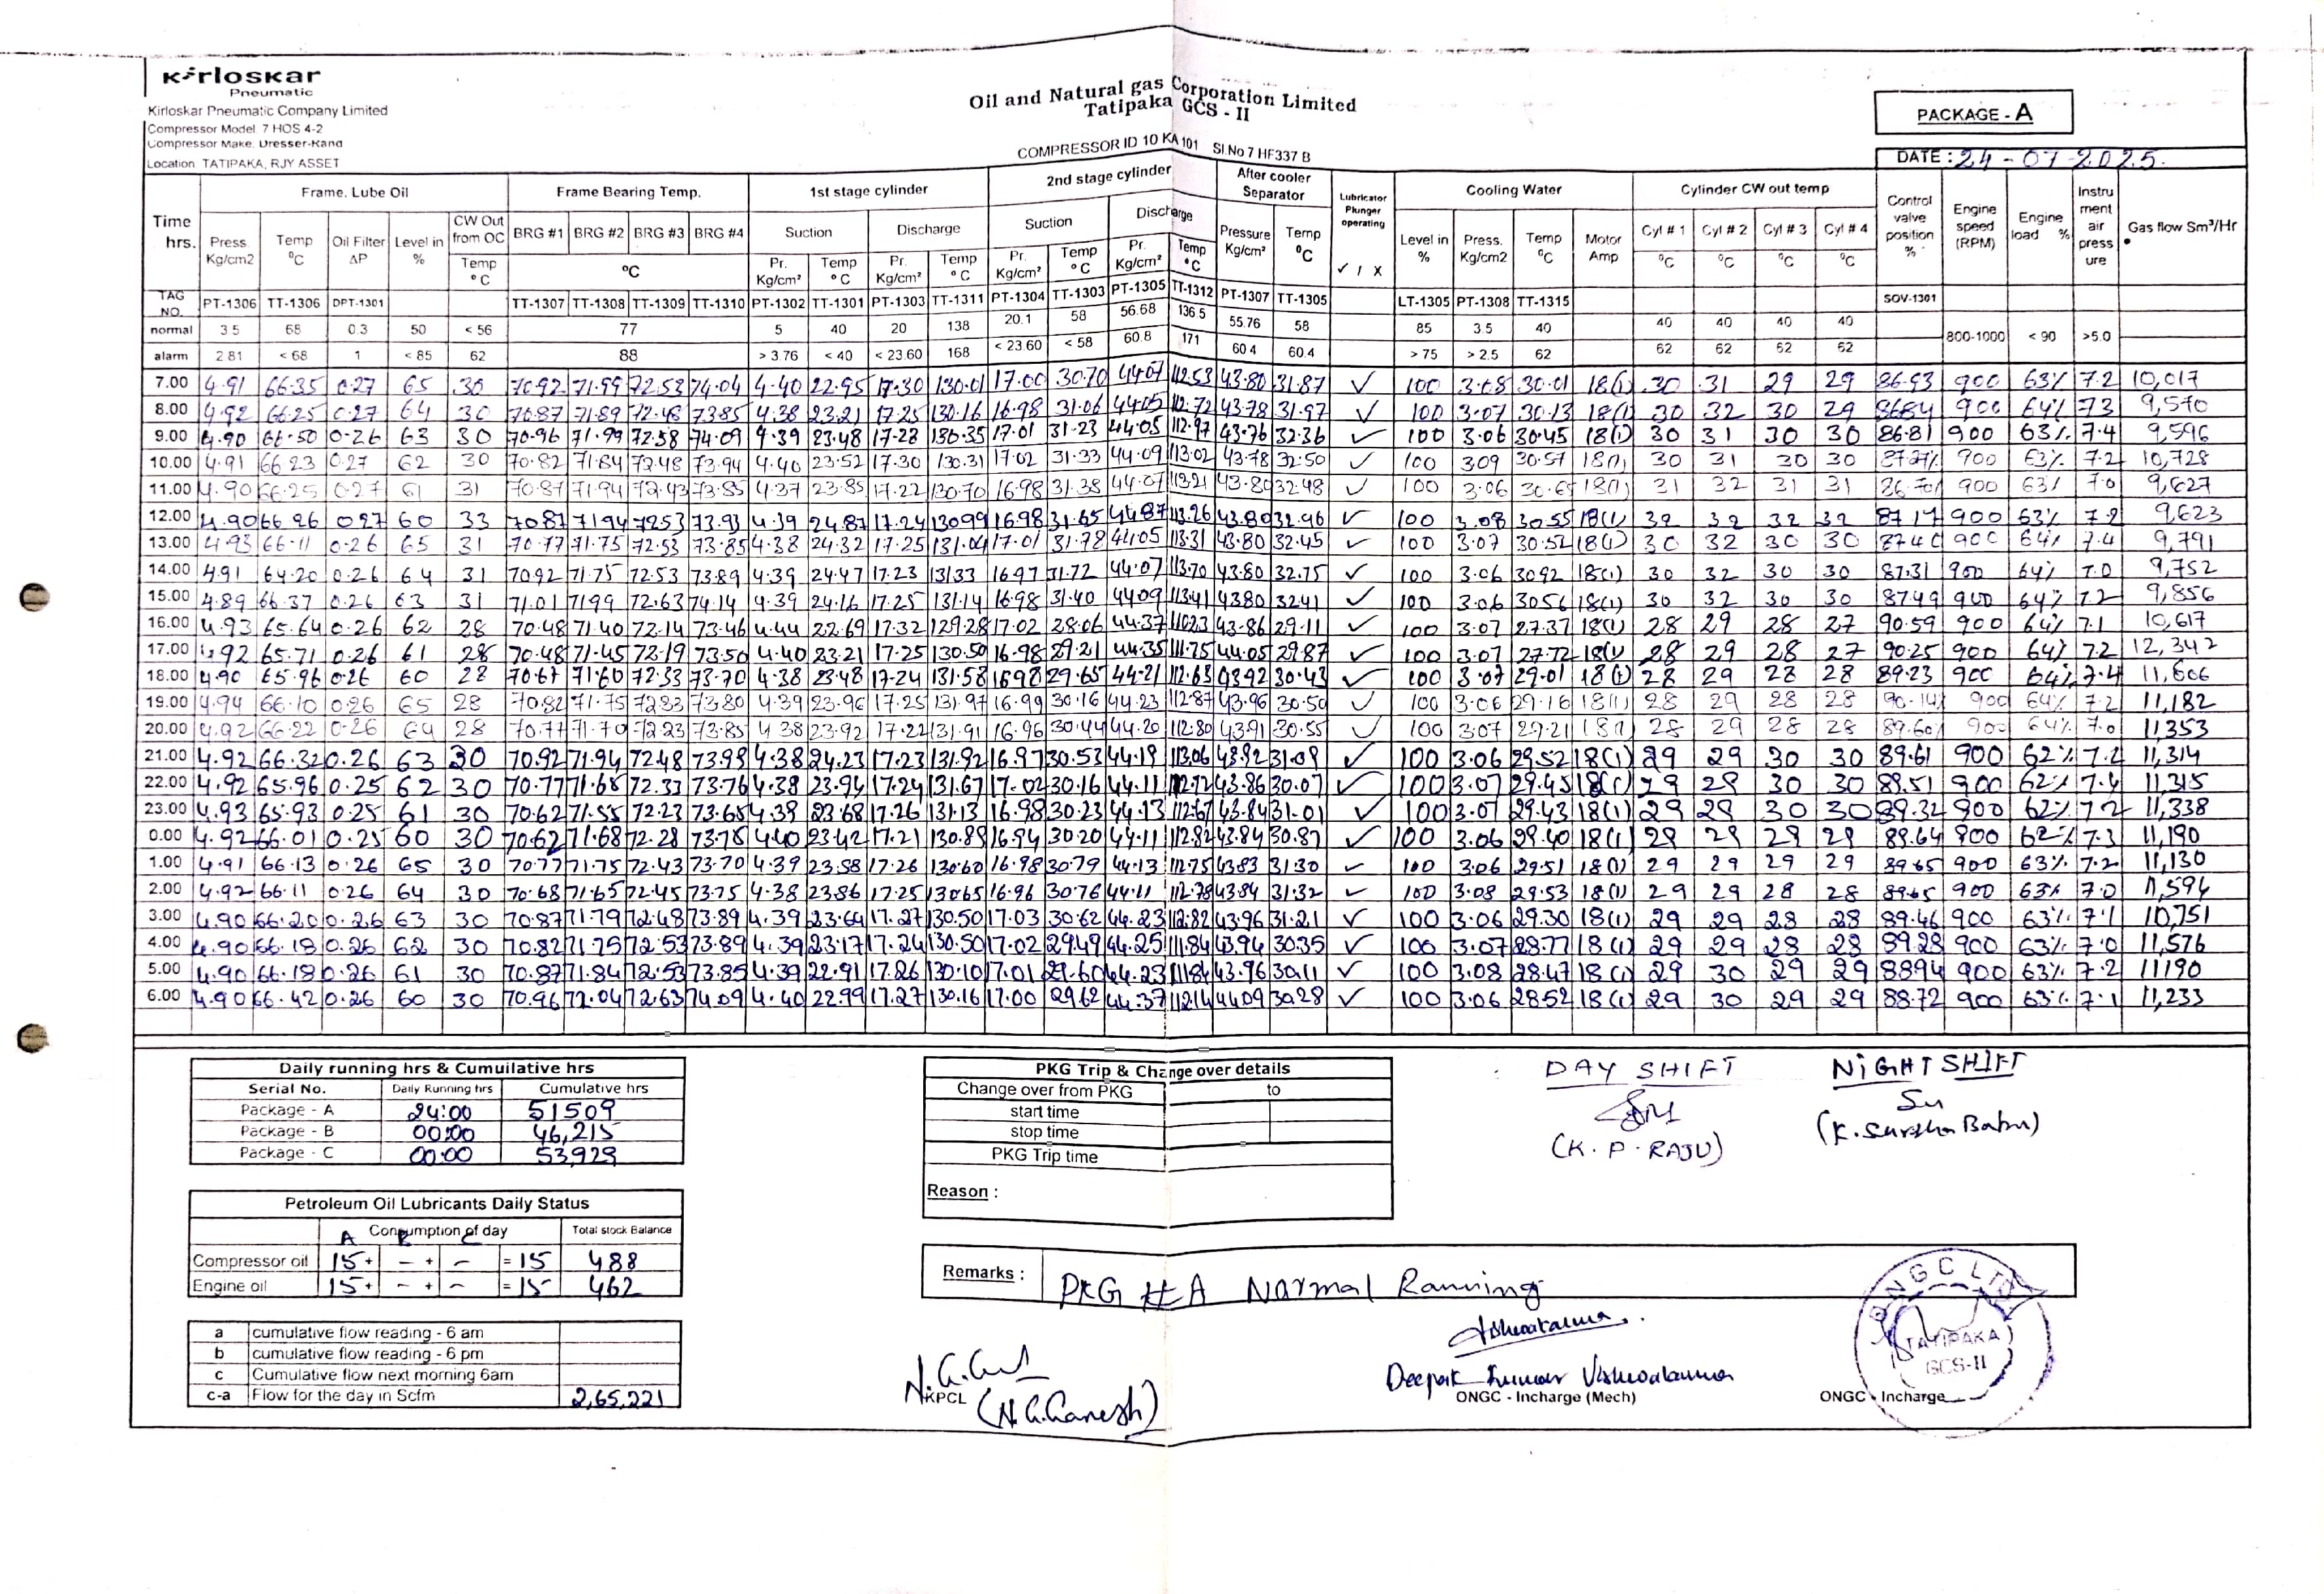 Kirloskar
Pneumatic
Kirloskar Pneumatic Company Limited
Compressor Model 7 HOS 4-2
Compressor Make: Dresser-Rand
Location TATIPAKA, RJY ASSET
Oil and Natural gas Corporation Limited
Tatipaka GCS - II
COMPRESSOR ID 10 KA 101 Sl.No 7 HF337 B
PACKAGE - A
DATE : 24-07-2025.
Time hrs. Frame. Lube Oil Frame Bearing Temp. 1st stage cylinder 2nd stage cylinder After cooler Separator Lubricator Plunger operating Cooling Water Cylinder CW out temp Control valve position % Engine speed (RPM) Engine load % Instru ment air press ure Gas flow Sm³/Hr
Press Kg/cm2 Temp ⁰C Oil Filter ΔP Level in % CW Out from OC BRG #1 BRG #2 BRG #3 BRG #4 Suction Discharge Suction Discharge Pressure Kg/cm² Temp ⁰C Level in % Press. Kg/cm2 Temp ⁰C Motor Amp Cyl # 1 Cyl # 2 Cyl # 3 Cyl # 4
Temp ° C ⁰C Pr. Kg/cm² Temp ° C Pr. Kg/cm² Temp ° C Pr. Kg/cm² Temp ° C Pr. Kg/cm² Temp ° C ✓ / X ⁰C ⁰C ⁰C ⁰C
TAG NO. PT-1306 TT-1306 DPT-1301 TT-1307 TT-1308 TT-1309 TT-1310 PT-1302 TT-1301 PT-1303 TT-1311 PT-1304 TT-1303 PT-1305 TT-1312 PT-1307 TT-1305 LT-1305 PT-1308 TT-1315 SOV-1301
normal 3.5 68 0.3 50 < 56 77 5 40 20 138 20.1 58 56.68 136.5 55.76 58 85 3.5 40 40 40 40 40 800-1000 < 90 >5.0
alarm 2.81 < 68 1 < 85 62 88 > 3.76 < 40 < 23.60 168 < 23.60 < 58 60.8 171 60.4 60.4 > 75 > 2.5 62 62 62 62 62
7.00 4.91 66.35 0.27 65 30 70.92 71.99 72.53 74.04 4.40 22.95 17.30 130.01 17.00 30.70 4407 112.53 43.80 31.87 ✓ 100 3.08 30.01 18(1) 30 31 29 29 86.93 900 63% 7.2 10,017
8.00 4.92 66.25 0.27 64 30 70.87 71.89 72.48 73.85 4.38 23.21 17.25 130.16 16.98 31.06 4405 112.72 43.78 31.97 ✓ 100 3.07 30.13 18(1) 30 32 30 29 8684 900 64% 73 9,570
9.00 4.90 66.50 0.26 63 30 70.96 71.99 72.58 74.09 4.39 23.48 17.28 130.35 17.01 31.23 44.05 112.97 43.76 32.36 ✓ 100 3.06 30.45 18(1) 30 31 30 30 86.81 900 63% 7.4 9,596
10.00 4.91 66.23 0.27 62 30 70.82 71.84 72.48 73.94 4.40 23.52 17.30 130.31 17.02 31.33 44.09 113.02 43.78 32.50 ✓ 100 309 30.57 18(1) 30 31 30 30 87.27% 900 63% 7.2 10,728
11.00 4.90 66.25 0.27 61 31 70.87 71.94 72.43 73.85 4.37 23.85 17.22 130.70 16.98 31.38 44.07 113.21 43.80 32.48 ✓ 100 3.06 30.65 18(1) 31 32 31 31 86.70% 900 63% 7.0 9,627
12.00 4.90 66.26 027 60 33 70.87 7194 7253 73.93 4.39 24.87 17.24 13099 16.98 31.65 4487 113.26 43.80 32.96 ✓ 100 3.08 30.55 18(1) 32 32 32 32 87.17 900 63% 7.2 9,623
13.00 4.93 66.11 0.26 65 31 70.77 71.75 72.53 73.85 4.38 24.32 17.25 131.04 17.01 31.78 4405 113.31 43.80 32.45 ✓ 100 3.07 30.52 18(1) 30 32 30 30 8740 900 64% 7.4 9,791
14.00 4.91 64.20 0.26 64 31 70.92 71.75 72.53 73.89 4.39 24.47 17.23 13133 1697 31.72 44.07 113.70 43.80 32.75 ✓ 100 3.06 3092 18(1) 30 32 30 30 87.31 900 64% 7.0 9,752
15.00 4.89 66.37 0.26 63 31 71.01 7199 72.63 74.14 4.39 24.16 17.25 131.14 16.98 31.40 4409 113.41 4380 3241 ✓ 100 3.06 3056 18(1) 30 32 30 30 8749 900 64% 7.2 9,856
16.00 4.93 65.64 0.26 62 28 70.48 71.40 72.14 73.46 4.44 22.69 17.32 129.28 17.02 28.06 44.37 11023 43.86 29.11 ✓ 100 3.07 27.37 18(1) 28 29 28 27 90.59 900 64% 7.1 10,617
17.00 4.92 65.71 0.26 61 28 70.48 71.45 72.19 73.50 4.40 23.21 17.25 130.50 16.98 29.21 44.35 111.75 44.05 29.87 ✓ 100 3.07 27.72 18(1) 28 29 28 27 90.25 900 64% 7.2 12,342
18.00 4.90 65.96 0.26 60 28 70.67 71.60 72.33 73.70 4.38 23.48 17.24 131.58 1698 29.65 44.21 112.63 4392 30.43 ✓ 100 3.07 29.01 18(1) 28 29 28 28 89.23 900 64% 7.4 11,606
19.00 4.94 66.10 0.26 65 28 70.82 71.75 72.83 73.80 4.39 23.96 17.25 131.97 16.99 30.16 44.23 112.87 43.96 30.50 ✓ 100 3.06 29.16 18(1) 28 29 28 28 90.14% 900 64% 7.2 11,182
20.00 4.92 66.22 0.26 64 28 70.77 71.70 72.23 73.85 4.38 23.92 17.22 131.91 16.96 30.44 44.20 112.80 43.91 30.55 ✓ 100 307 29.21 18(1) 28 29 28 28 89.60% 900 64% 7.0 11,353
21.00 4.92 66.32 0.26 63 30 70.92 71.94 72.48 73.99 4.38 24.23 17.23 131.92 16.97 30.53 44.19 113.06 43.92 31.09 ✓ 100 3.06 29.52 18(1) 29 29 30 30 89.61 900 62% 7.2 11,314
22.00 4.92 65.96 0.25 62 30 70.77 71.68 72.33 73.76 4.38 23.94 17.24 131.67 17.02 30.16 44.11 112.72 43.86 30.07 ✓ 100 3.07 29.45 18(1) 29 29 30 30 89.51 900 62% 7.4 11,315
23.00 4.93 65.93 0.25 61 30 70.62 71.55 72.23 73.65 4.39 23.68 17.26 131.13 16.98 30.23 44.13 112.67 43.84 31.01 ✓ 100 3.07 29.43 18(1) 29 29 30 30 89.32 900 62% 7.2 11,338
0.00 4.92 66.01 0.25 60 30 70.62 71.68 72.28 73.75 4.40 23.42 17.21 130.89 16.94 30.20 44.11 112.82 43.84 30.87 ✓ 100 3.06 29.40 18(1) 29 29 29 29 89.64 900 62% 7.3 11,190
1.00 4.91 66.13 0.26 65 30 70.77 71.75 72.43 73.70 4.39 23.58 17.26 130.60 16.98 30.79 44.13 112.75 43.83 31.30 ✓ 100 3.06 29.51 18(1) 29 29 29 29 89.65 900 63% 7.2 11,130
2.00 4.92 66.11 0.26 64 30 70.68 71.65 72.45 73.75 4.38 23.86 17.25 130.65 16.96 30.76 44.11 112.78 43.84 31.32 ✓ 100 3.08 29.53 18(1) 29 29 28 28 89.65 900 63% 7.0 11,594
3.00 4.90 66.20 0.26 63 30 70.87 71.79 72.48 73.89 4.39 23.64 17.27 130.50 17.03 30.62 44.23 112.82 43.96 31.21 ✓ 100 3.06 29.30 18(1) 29 29 28 28 89.46 900 63% 7.1 10,751
4.00 4.90 66.18 0.26 62 30 70.82 71.75 72.53 73.89 4.39 23.17 17.24 130.50 17.02 29.49 44.25 111.84 43.94 30.35 ✓ 100 3.07 28.77 18(1) 29 29 28 28 89.28 900 63% 7.0 11,576
5.00 4.90 66.18 0.26 61 30 70.87 71.84 72.53 73.85 4.39 22.91 17.26 130.10 17.01 29.60 44.23 11184 43.96 30.11 ✓ 100 3.08 28.47 18(1) 29 30 29 29 8894 900 63% 7.2 11190
6.00 4.90 66.42 0.26 60 30 70.96 72.04 72.63 74.09 4.40 22.99 17.27 130.16 17.00 2962 44.37 112.14 4409 30.28 ✓ 100 3.06 2852 18(1) 29 30 29 29 88.72 900 63% 7.1 11,233
Daily running hrs & Cumuilative hrs
Serial No. Daily Running hrs Cumulative hrs
Package - A 24:00 51509
Package - B 00:00 46,215
Package - C 00:00 53,929
Petroleum Oil Lubricants Daily Status
Consumption of day Total stock Balance
A B C
Compressor oil 15 + - + - = 15 488
Engine oil 15 + - + - = 15 462
a cumulative flow reading - 6 am
b cumulative flow reading - 6 pm
c Cumulative flow next morning 6am
c-a Flow for the day in Scfm 2,65,221
PKG Trip & Change over details
Change over from PKG to
start time
stop time
PKG Trip time
Reason :
DAY SHIFT
(K. P. RAJU)
NIGHT SHIFT
(K. Suresha Babu)
Remarks : PKG # A Normal Running
KPCL
(N.G.Ganesh)
Deepak Kumar Vishwakarma
ONGC - Incharge (Mech)
ONGC LTD
TATIPAKA
GCS-II
ONGC - Incharge